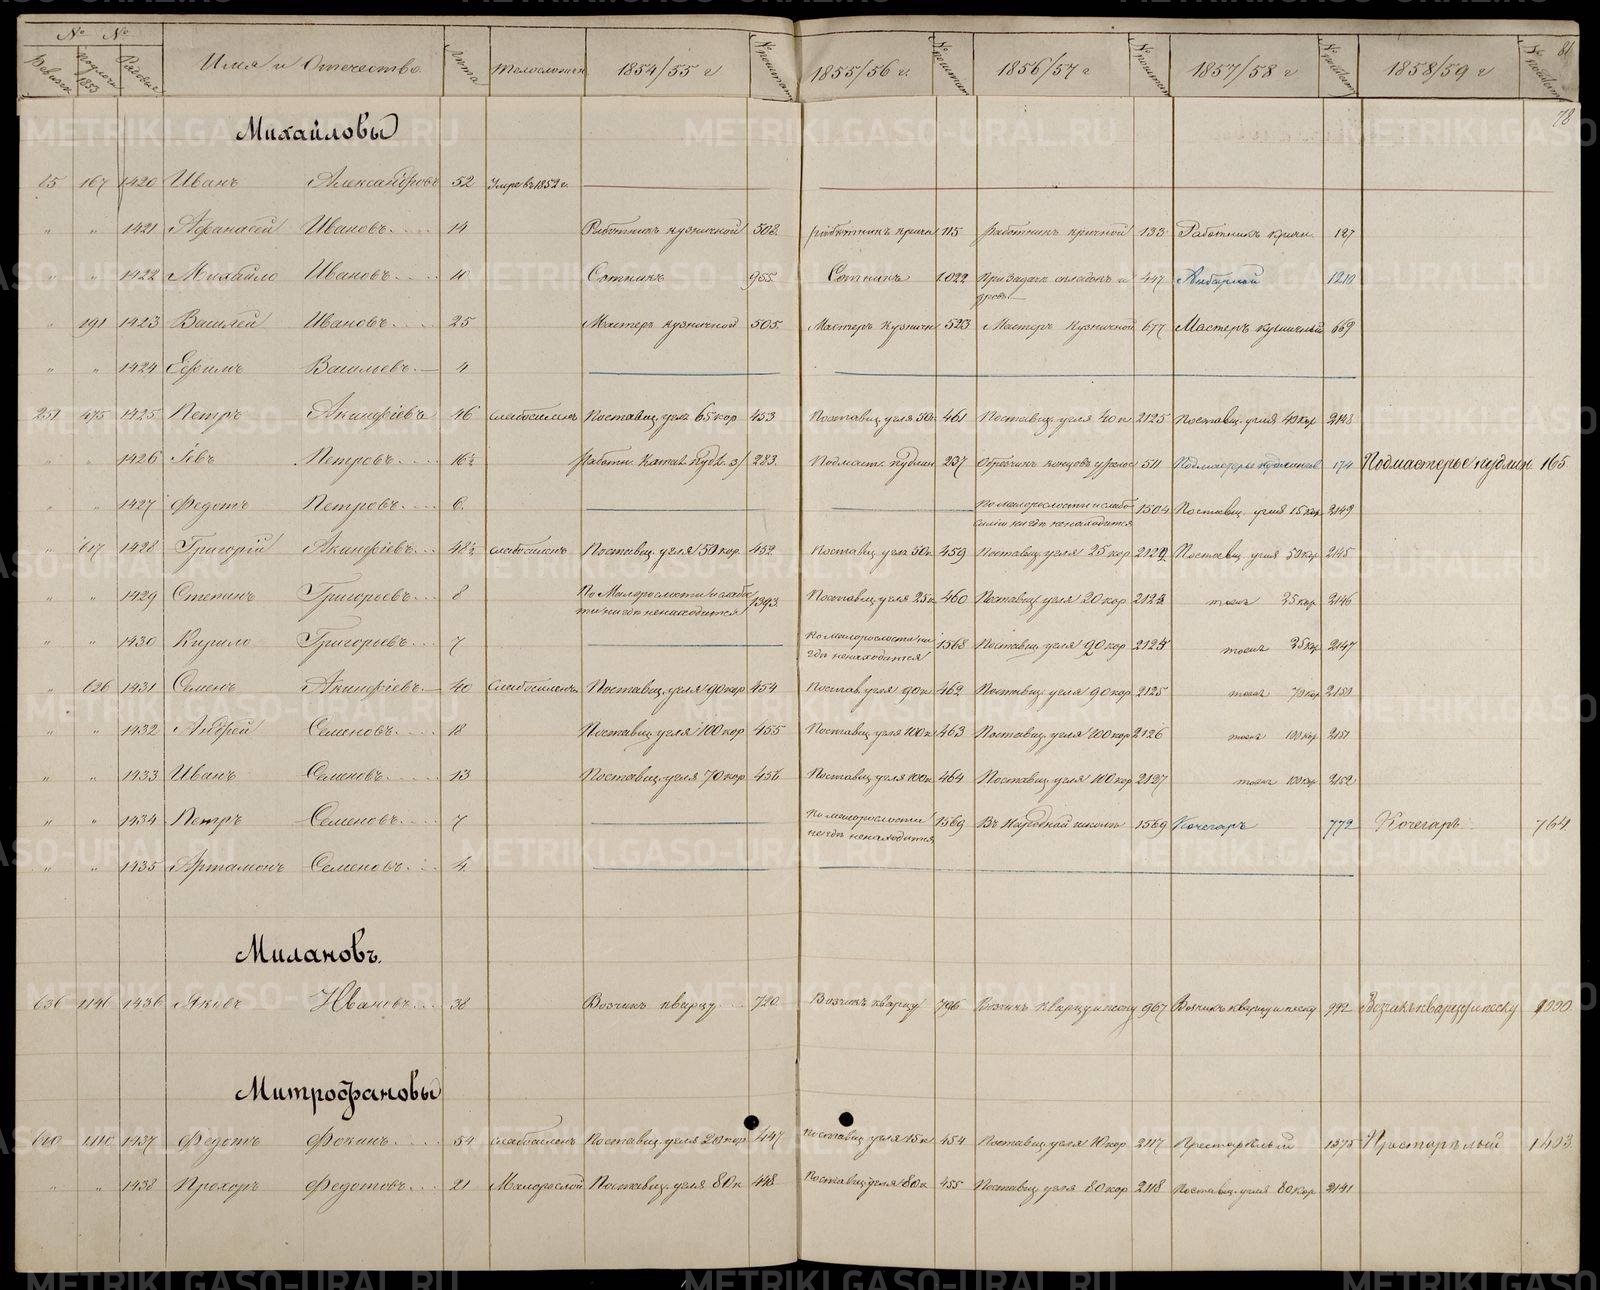 № № Имя и Отчество Лета Телосложен. 1854/55 г № 1855/56 г. № 1856/57 г № 1857/58 г № 1858/59 г № 81
Ревизск 1853 Рядовые
78
Михайловы
85 167 1420 Иванъ Александровъ 52 Умре въ 1852 г.
" " 1421 Афанасей Ивановъ 14 Работникъ кузничной 508 работникъ 115 работникъ кричной 133 Работникъ кричн. 127
" " 1422 Михайло Ивановъ 10 Сотникъ 955 Сотникъ 1022 При Задаче складокъ и дровъ 447 Амбарный 1210
" 191 1423 Василей Ивановъ 25 Мастеръ кузничной 505 Мастеръ Кузничн 523 Мастеръ Кузничной 677 Мастеръ кузничный 669
" " 1424 Ефимъ Васильевъ 4
251 475 1425 Петръ Акинфіевъ 46 слабосиленъ Поставщ. угля 65 кор 453 Поставщ угля 50к 461 Поставщ. угля 40 к 2125 Поставщ. угля 40 кор 2148
" " 1426 Іевъ Петровъ 16½ 283 Подмаст. пудлин 237 511 Подмастерье 174 Подмастерье пудлин. 165
" " 1427 Федотъ Петровъ 6 По малорослости и слабосилію нигдѣ ненаходится 1504 Поставщ. угля 15 кор 2149
" 617 1428 Григорій Акинфіевъ 48½ слабосиленъ Поставщ. угля 50 кор. 452 Поставщ угля 50к 459 Поставщ угля 25 кор 2122 Поставщ угля 50 кор 2145
" " 1429 Степанъ Григорьевъ 8 По Малорослости и слабости нигдѣ ненаходится 1393 Поставщ угля 25к 460 Поставщ угля 20 кор 2123 тожъ 25 кор 2146
" " 1430 Кирило Григорьевъ 7 По малорослости нигдѣ ненаходится 1568 Поставщ. угля 20 кор 2124 тожъ 25 кор 2147
" 626 1431 Семенъ Акинфіевъ 40 Слабосиленъ Поставщ. угля 90 кор 454 Постав угля 90к 462 Поставщ угля 90 кор 2125 тожъ 70 кор 2150
" " 1432 Андрей Семеновъ 18 Поставщ угля 100 кор 455 Поставщ угля 100к 463 Поставщ. угля 100 кор 2126 тожъ 100 кор 2151
" " 1433 Иванъ Семеновъ 13 Поставщ. угля 70 кор 456 Поставщ угля 100к 464 Поставщ угля 100 кор 2127 тожъ 100 кор 2152
" " 1434 Петръ Семеновъ 7 По малорослости негдѣ ненаходится 1569 Въ Народной школѣ 1569 Кочегаръ 772 Кочегаръ 764
" " 1435 Артамонъ Семеновъ 4
Милановъ.
636 1146 1436 Яковъ Ивановъ 38 Возчикъ кварцу 720 Возчикъ кварцу 796 Возчикъ кварцу и песку 967 Возчикъ кварцу и песку 992 Возчикъ кварцу и песку 1000
Митрофановы
640 1110 1437 Федотъ Фокинъ 54 слабосиленъ Поставщ. угля 20 кор 447 Поставщ угля 15к 454 Поставщ угля 10 кор 2117 Престарѣлый 1375 Престарѣлый 1403
" " 1438 Прохоръ Федотовъ 21 Малорослой Поставщ. угля 80 к 448 Поставщ угля 80к 455 Поставщ угля 80 кор 2118 Поставщ. угля 80 кор 2141
METRIKI.GASO-URAL.RU